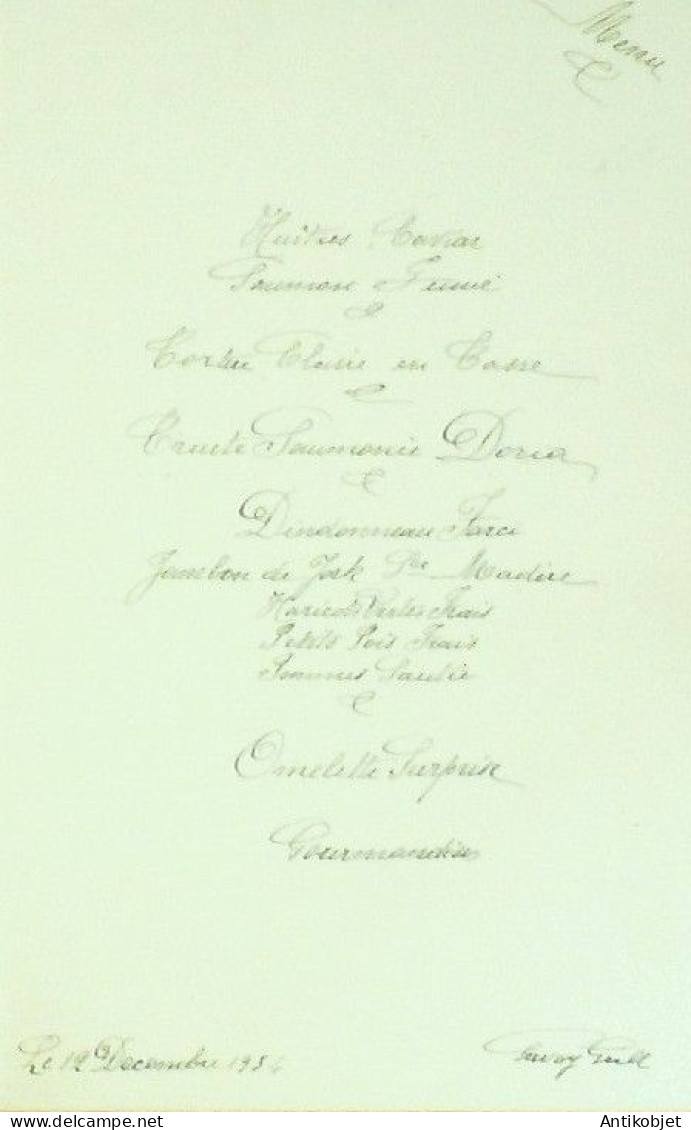 Menu
Huîtres Caviar
Saumon Fumé
Tortue Claire en Tasse
Truite Saumonée Doria
Dindonneau Farci
Jambon de York Sce Madère
Haricots Verts Frais
Petits Pois Frais
Pommes Sautée
Omelette Surprise
Gourmandises
Le 12 Decembre 195
Savoy Grill
Antikobjet